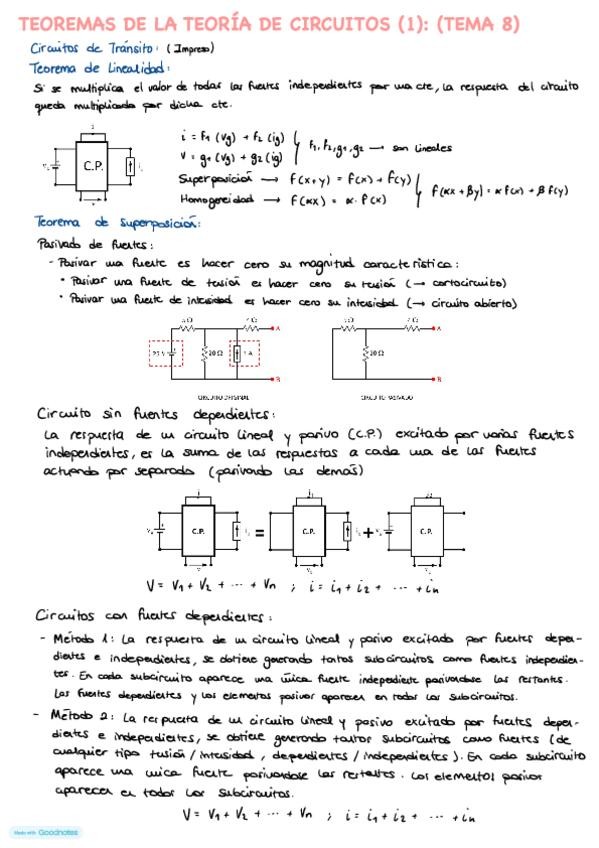 TEOREMAS DE LA TEORÍA DE CIRCUITOS (1): (TEMA 8)
Circuitos de Tránsito: (Impreso)
Teorema de Linealidad:
Si se multiplica el valor de todas las fuentes independientes por una cte, la respuesta del circuito
queda multiplicada por dicha cte.
C.P.
i = f₁ (Vg) + f₂ (ig)
V = g₁ (Vg) + g₂ (ig)
f₁, f₂, g₁, g₂ → son lineales
Superposición → f(x+y) = f(x) + f(y)
Homogeneidad → f(αx) = α · f(x)
f(αx + βy) = α f(x) + β f(y)
Teorema de Superposición:
Pasivado de fuentes:
- Pasivar una fuente es hacer cero su magnitud característica:
• Pasivar una fuente de tensión es hacer cero su tensión (→ cortocircuito)
• Pasivar una fuente de intensidad es hacer cero su intensidad (→ circuito abierto)
A
A
20 Ω
20 Ω
B
B
CIRCUITO ORIGINAL
CIRCUITO PASIVADO
Circuito sin fuentes dependientes:
La respuesta de un circuito lineal y pasivo (C.P.) excitado por varias fuentes
independientes, es la suma de las respuestas a cada una de las fuentes
actuando por separado (pasivando las demás)
C.P. = C.P. + C.P.
V = V₁ + V₂ + ... + Vn ; i = i₁ + i₂ + ... + in
Circuitos con fuentes dependientes:
- Método 1: La respuesta de un circuito lineal y pasivo excitado por fuentes depen-
dientes e independientes, se obtiene generando tantos subcircuitos como fuentes independien-
tes. En cada subcircuito aparece una única fuente independiente pasivandose las restantes.
Las fuentes dependientes y los elementos pasivos aparecen en todos los subcircuitos.
- Método 2: La respuesta de un circuito lineal y pasivo excitado por fuentes depen-
dientes e independientes, se obtiene generando tantos subcircuitos como fuentes (de
cualquier tipo tensión / intensidad, dependientes / independientes). En cada subcircuito
aparece una única fuente pasivandose las restantes. Los elementos pasivos
aparecen en todos los subcircuitos.
V = V₁ + V₂ + ... + Vn ; i = i₁ + i₂ + ... + in
Made with Goodnotes